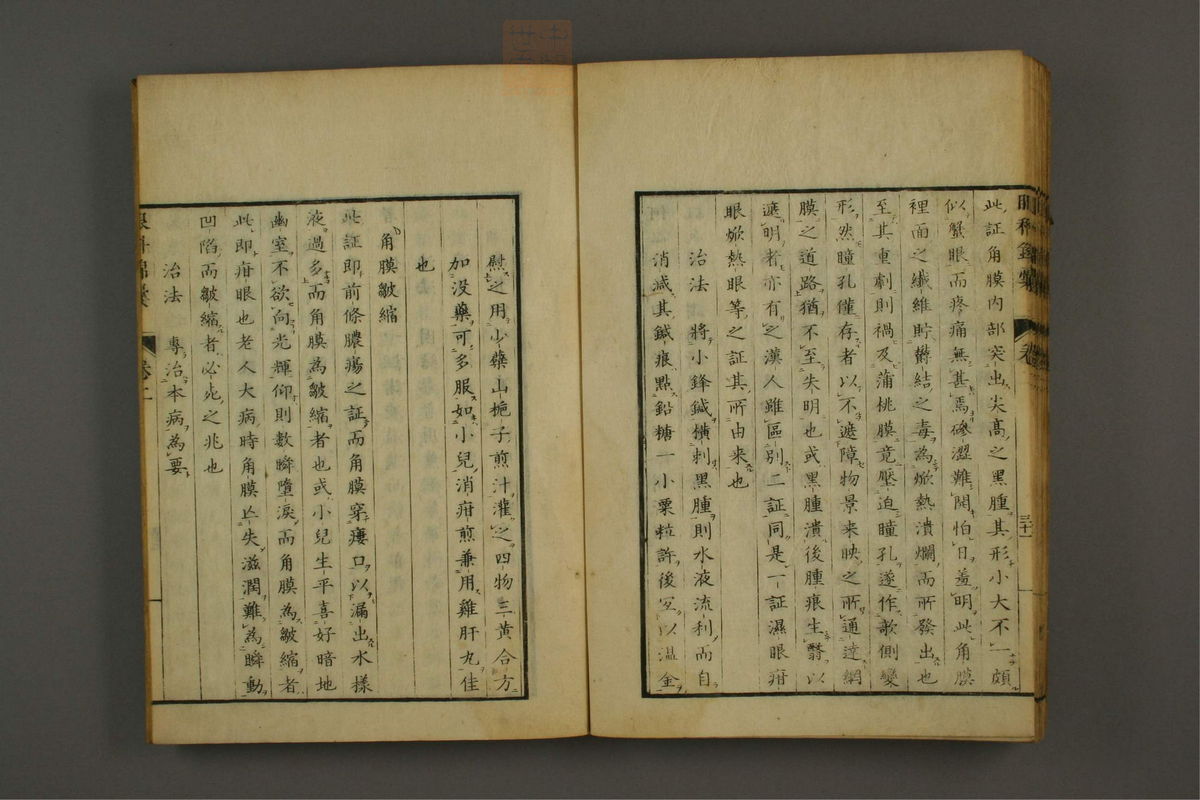 眼科錦囊 卷二
此証角膜內部突出尖高之黑腫其形小大不一頗
似蟹眼而疼痛無甚焉磣澀難開怕日羞明此角膜
裡面之纎維貯欝結之毒為焮熱潰爛而所發出也
至其重劇則禍及蒲桃膜竟壓迫瞳孔遂作欹側變
形然瞳孔僅存者以不遮障物景来映之所通達網
膜之道路猶不至失明也或黑腫潰後腫痕生翳以
遮明者亦有之漢人雖區別二証同是一証濕眼疳
眼焮熱眼等之証其所由来也
治法 將小鋒鍼横刺黑腫則水液流利而自
消減其鍼痕點鉛糖一小粟粒許後宜以温金
慰之用少藥山梔子煎汁灌之四物三黃合方
加没藥可多服如小兒消疳煎兼用雞肝丸佳
也
角膜皺縮
此証即前條膿瘍之証而角膜穿瘻口以漏出水樣
液過多而角膜為皺縮者也或小兒生平喜好暗地
幽室不欲向光輝仰則數瞬墮淚而角膜為皺縮者
此即疳眼也老人大病時角膜亡失滋潤難為瞬動
凹陷而皺縮者必死之兆也
治法 專治本病為要
眼科錦囊 卷二